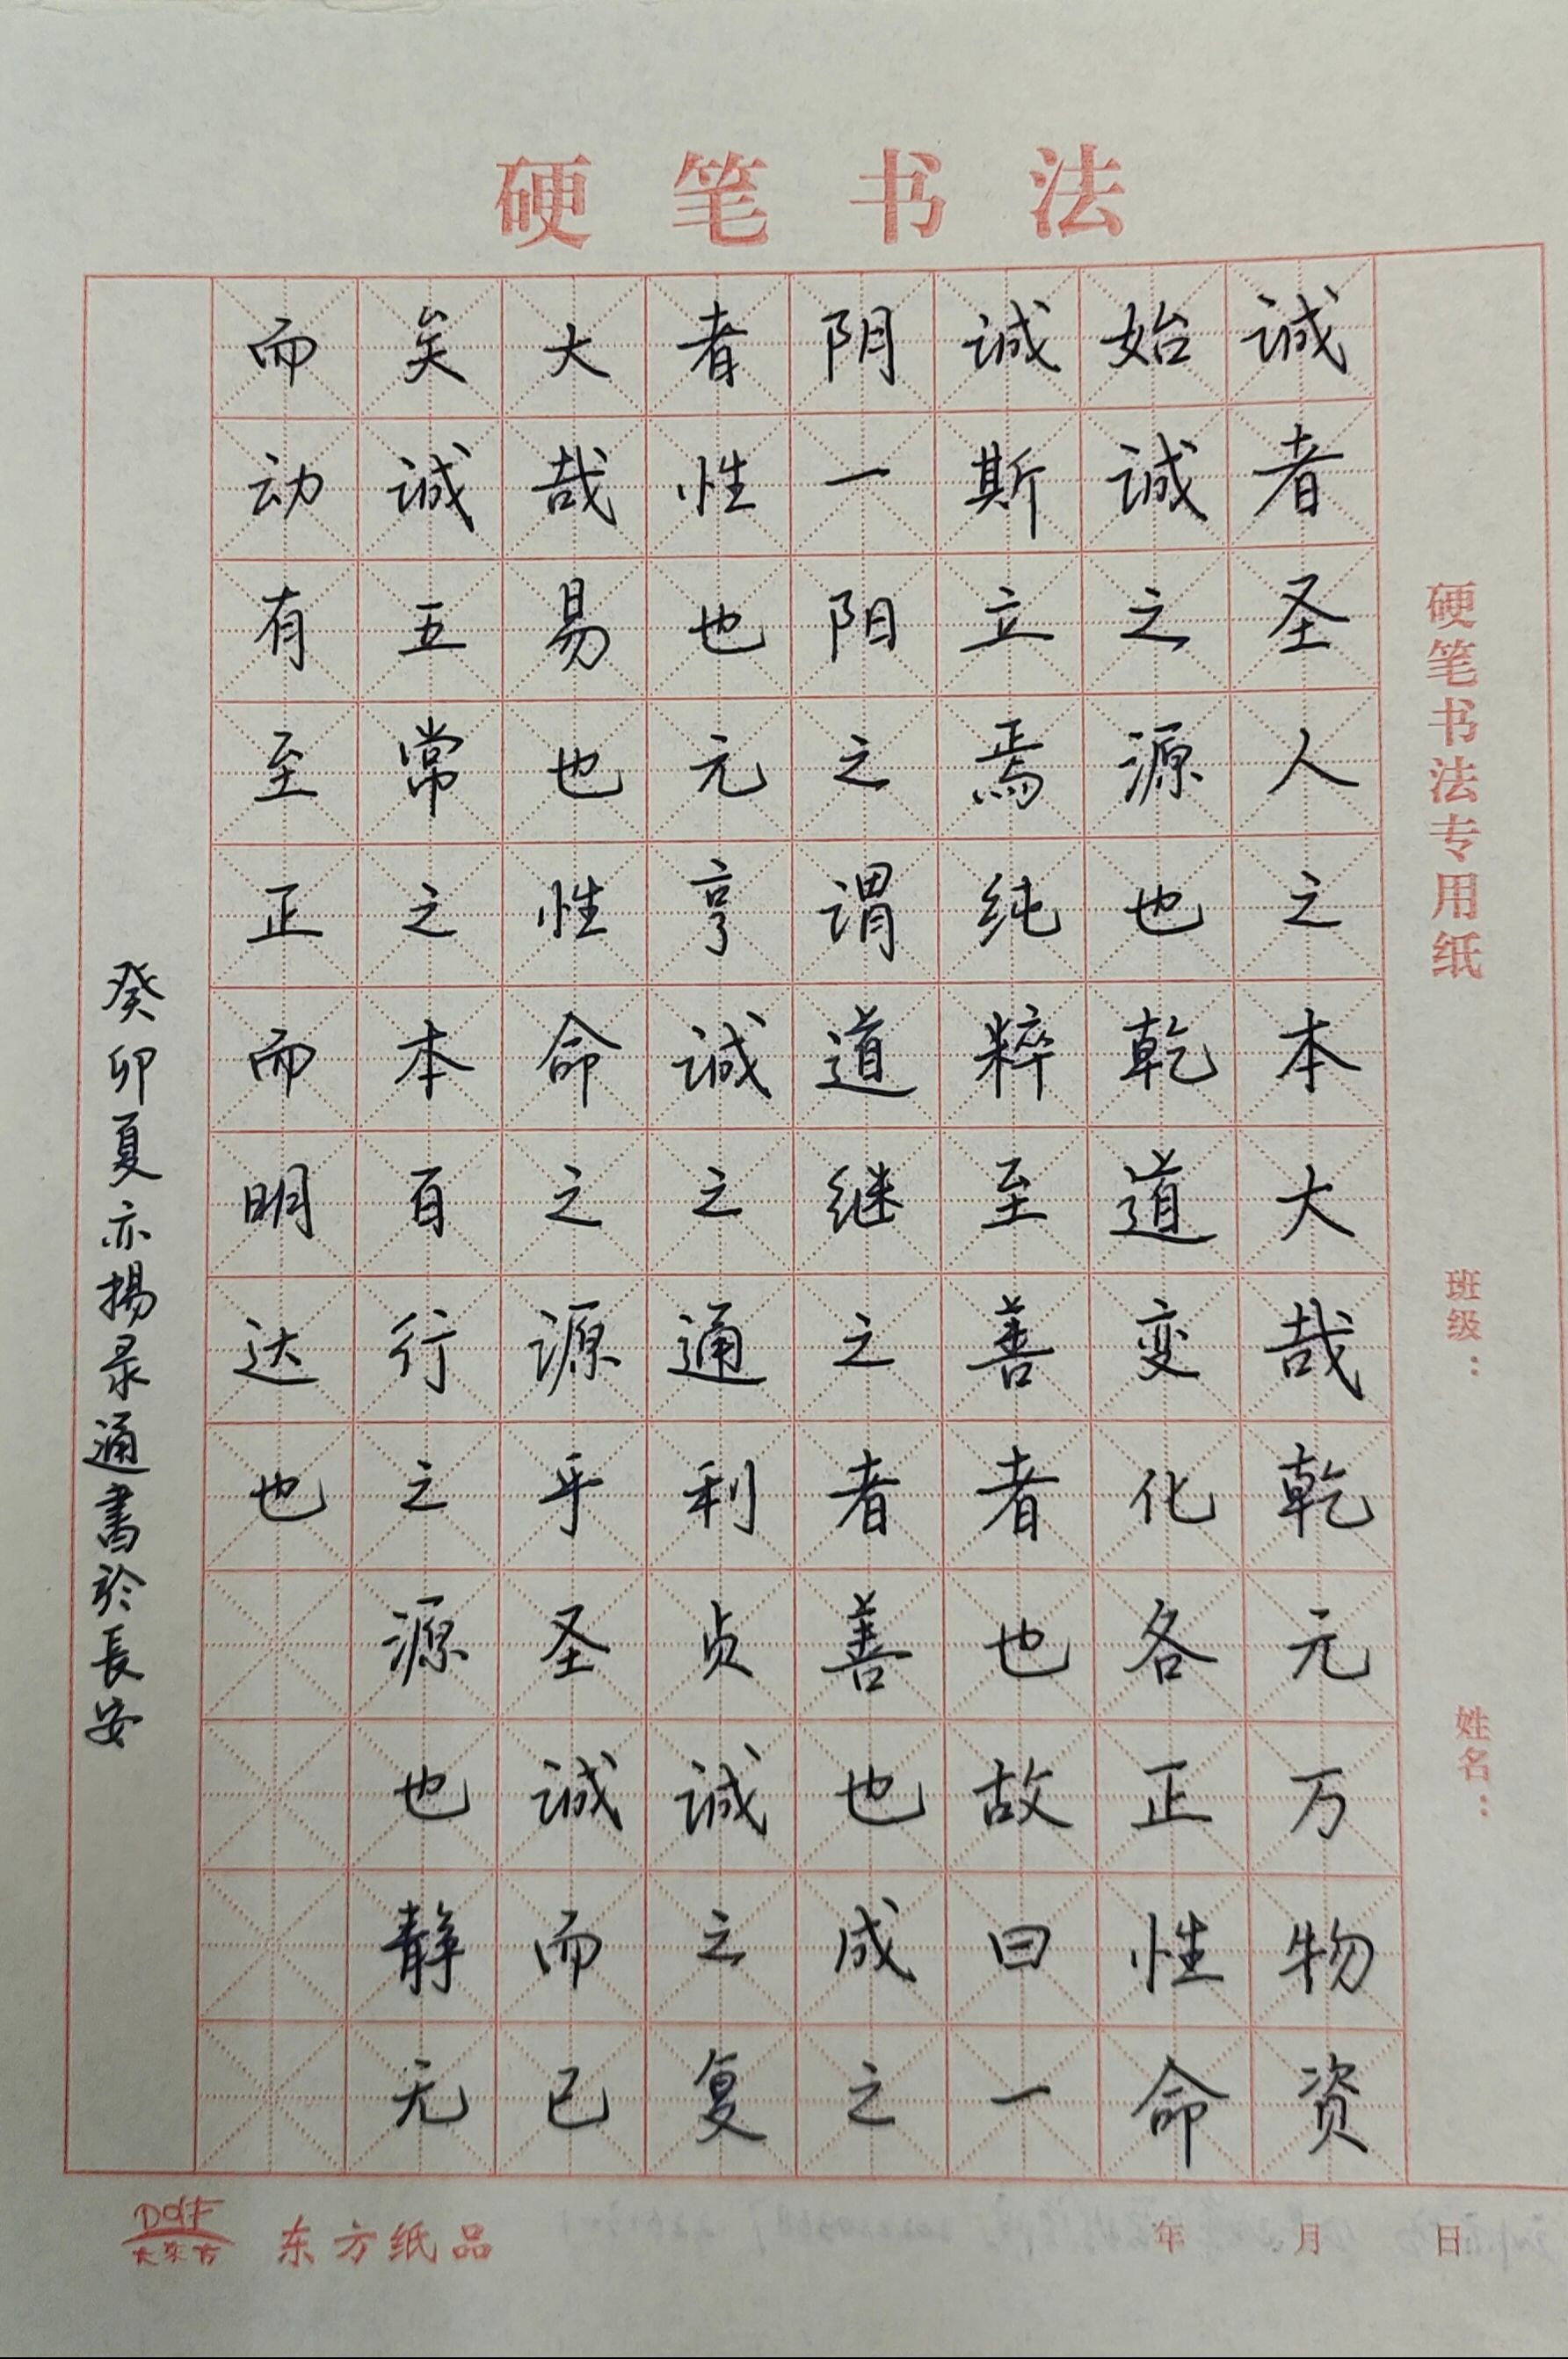 硬笔书法
硬笔书法专用纸
班级：
姓名：
诚者圣人之本大哉乾元万物资
始诚之源也乾道变化各正性命
诚斯立焉纯粹至善者也故曰一
阴一阳之谓道继之者善也成之
者性也元亨诚之通利贞诚之复
大哉易也性命之源乎圣诚而已
矣诚五常之本百行之源也静无
而动有至正而明达也
癸卯夏亦揚录通書於長安
DQF
大东方
东方纸品
年 月 日